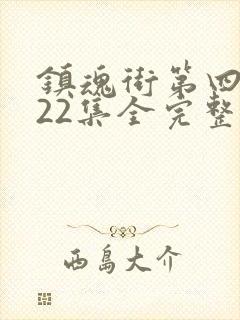 鎮魂街第四
22集全完整
西島大介